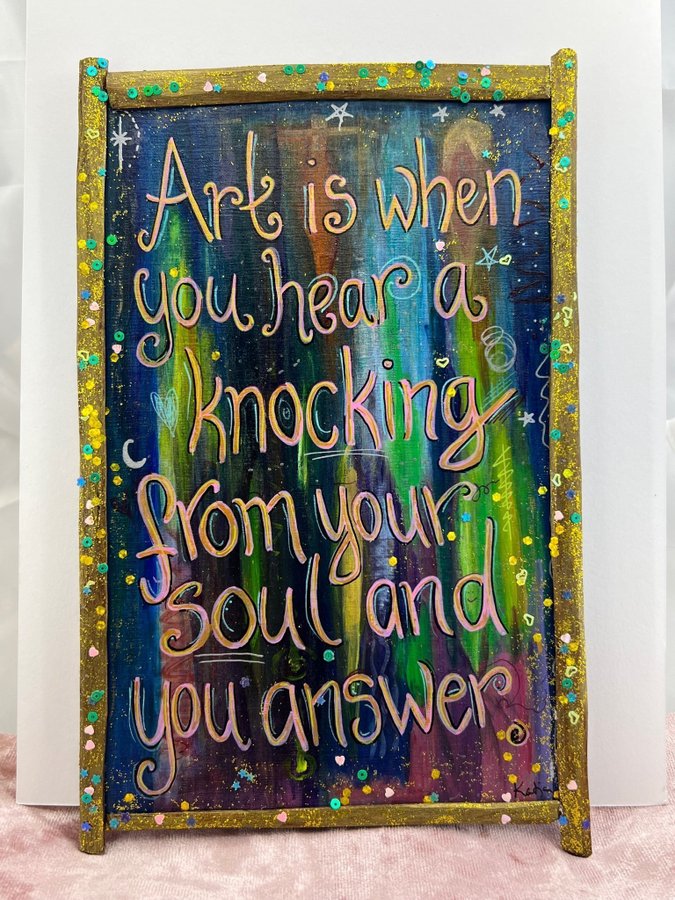 Art is when
you hear a
knocking
from your
soul and
you answer.